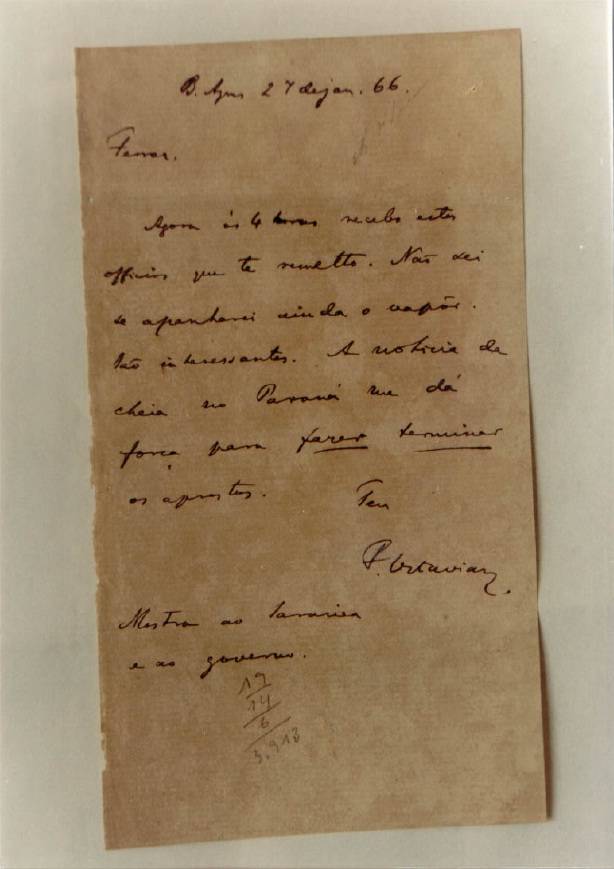 B. Ayres 27 de jan. 66.
Ferraz.
Agora ás 4 horas recebo estes
officios que te remetto. Não sei
se apanharei ainda o vapôr.
São interessantes. A noticia de
cheia no Paraná me dá
força para fazer terminar
os aprestos.
Teu
F. Octaviano.
Mostra ao Saraiva
e ao governo.
19
14
6
3.913